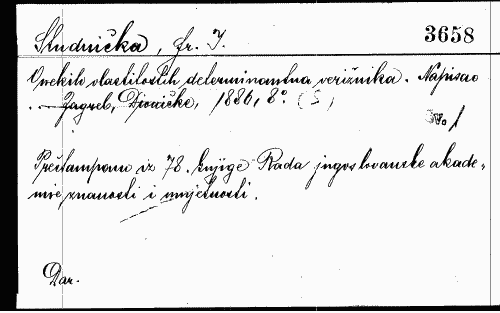 Studnička, Fr. J. 3658
O nekih vlastitostih determinantna verižnika. Napisao
— Zagreb, Dionička, 1886, 8°. (S)
sv. 1
Preštampano iz 78. knjige Rada jugoslavenske akade-
mije znanosti i umjetnosti.
Dar.